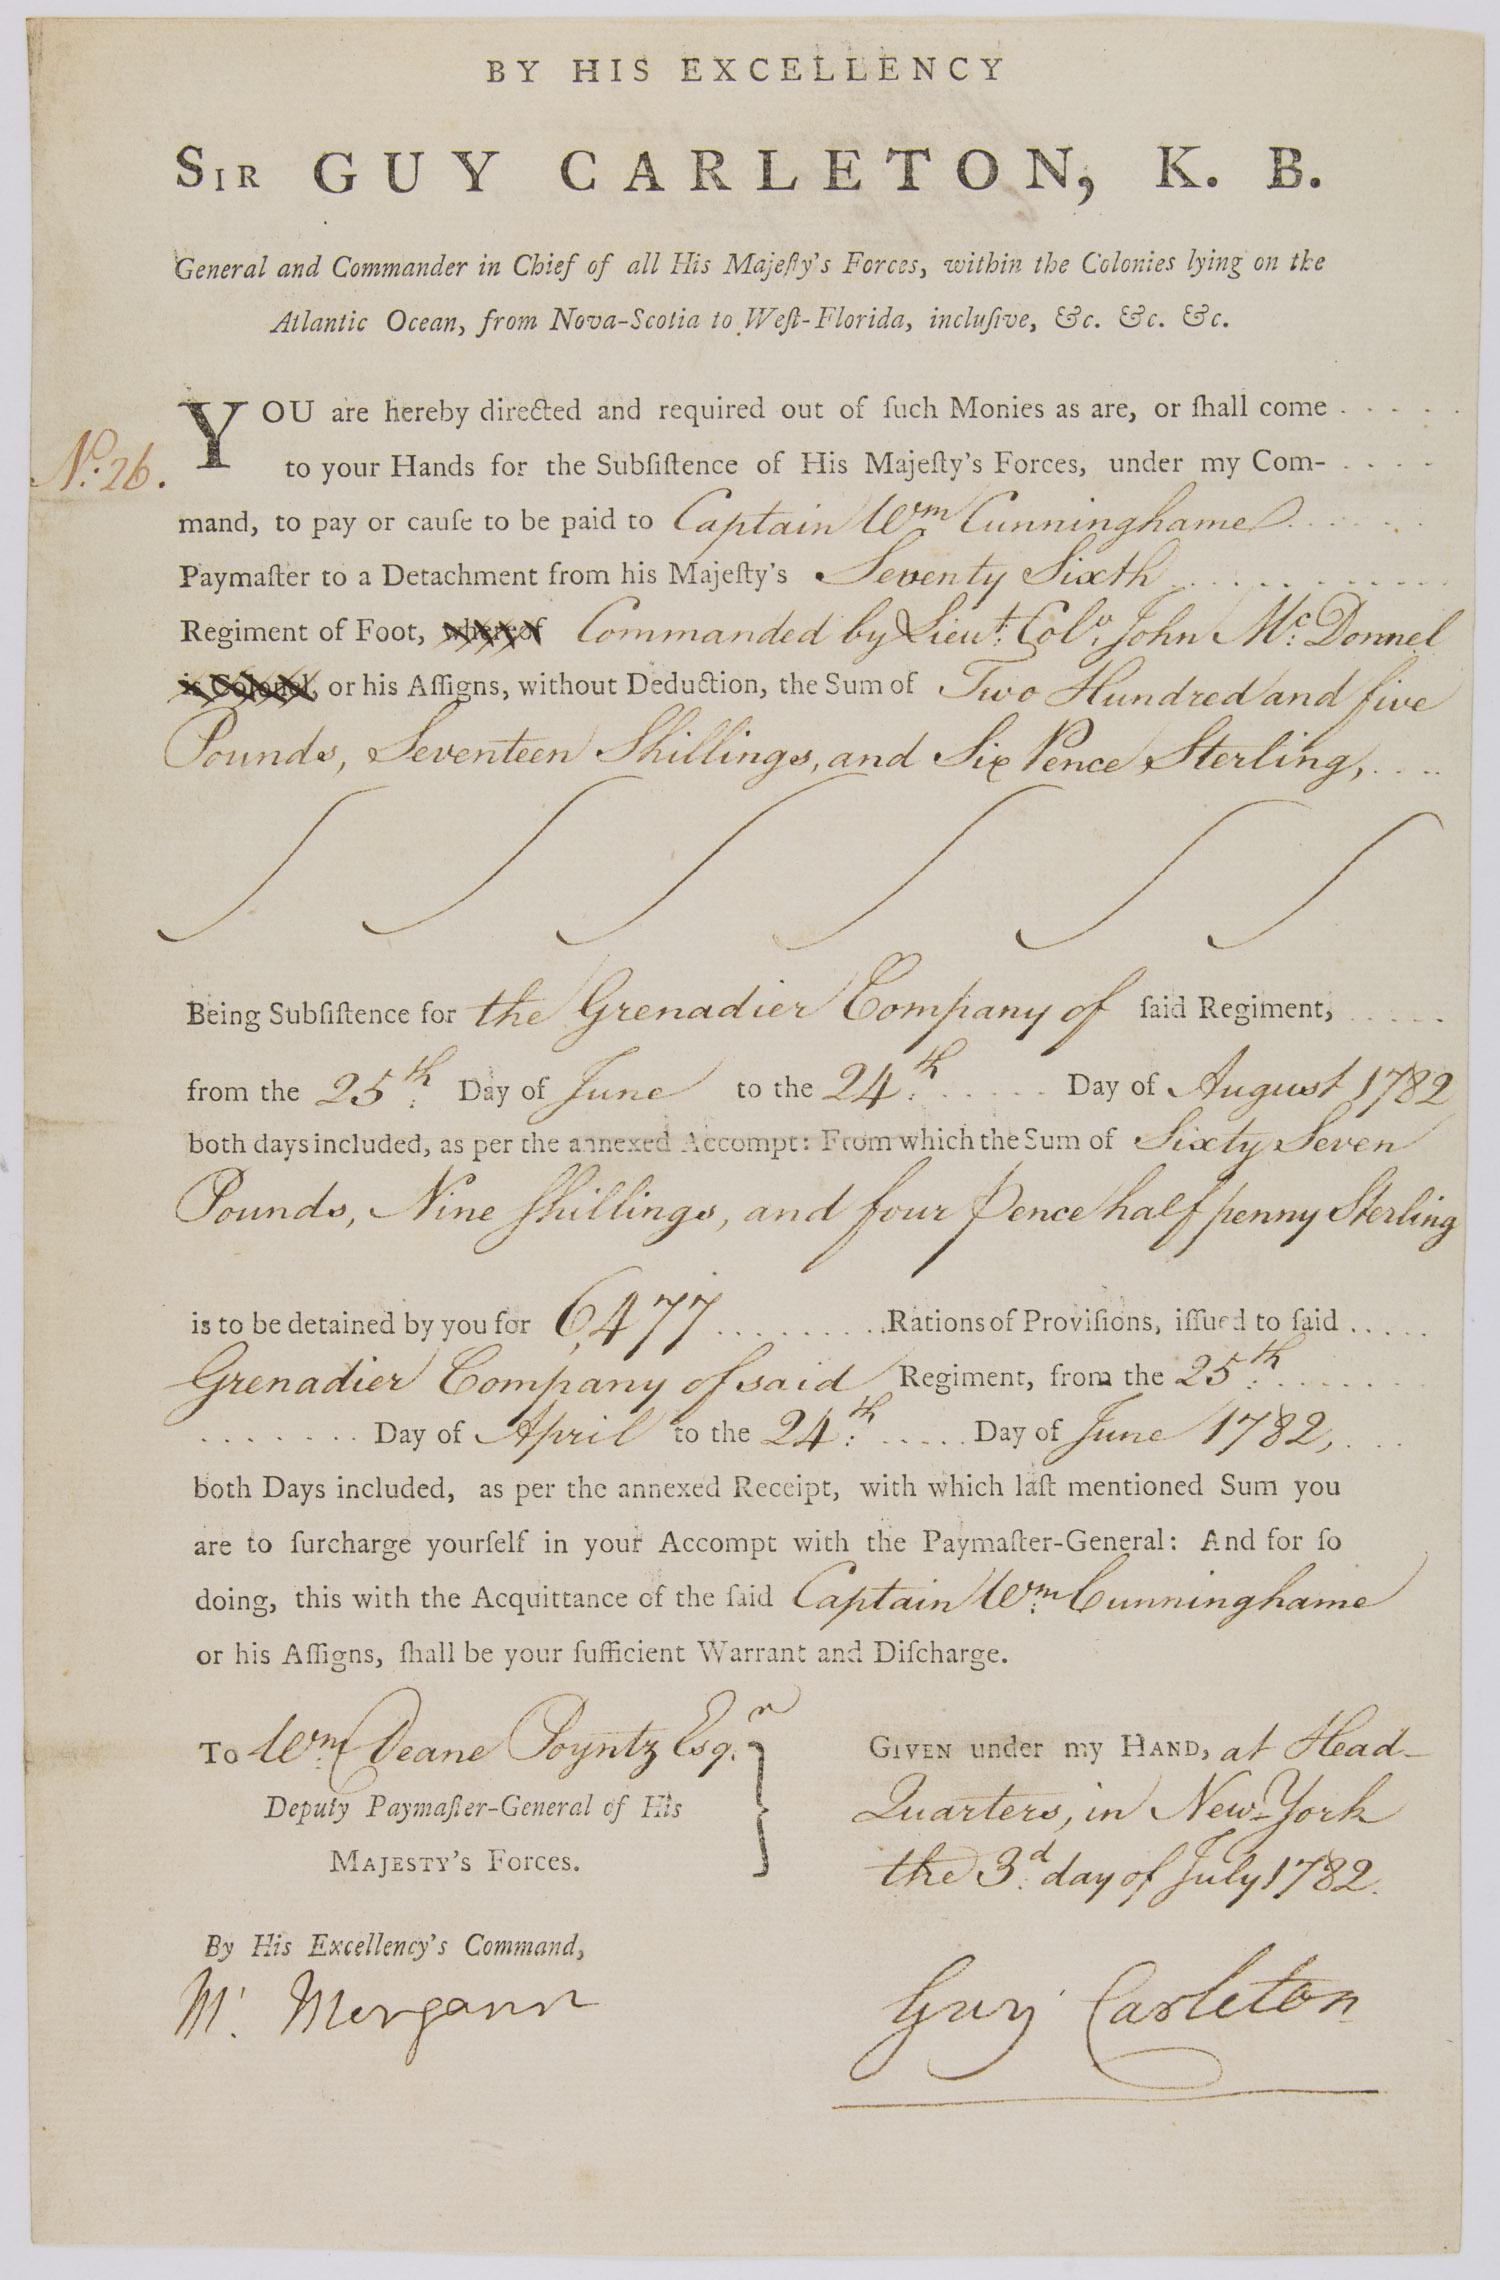 BY HIS EXCELLENCY
SIR GUY CARLETON, K. B.
General and Commander in Chief of all His Majeſty's Forces, within the Colonies lying on the
Atlantic Ocean, from Nova-Scotia to Weſt-Florida, incluſive, &c. &c. &c.
YOU are hereby directed and required out of ſuch Monies as are, or ſhall come . . . . .
No. 26.
to your Hands for the Subſiſtence of His Majeſty's Forces, under my Com- . . . .
mand, to pay or cauſe to be paid to Captain Wm Cunninghame . . . . . .
Paymaſter to a Detachment from his Majeſty's Seventy Sixth . . . . . . . . . . . .
Regiment of Foot, whereof Commanded by Lieut. Colo. John Mc. Donnel
is Colonel, or his Aſſigns, without Deduction, the Sum of Two Hundred and five
Pounds, Seventeen Shillings, and Six Pence Sterling, . . . .
Being Subſiſtence for the Grenadier Company of ſaid Regiment, . . . . .
from the 25th. Day of June to the 24th. . . . . . . Day of August 1782
both days included, as per the annexed Accompt: From which the Sum of Sixty Seven
Pounds, Nine Shillings, and four Pence half penny Sterling
is to be detained by you for 6,477 . . . . . . . . . Rations of Proviſions, iſſued to ſaid . . . . .
Grenadier Company of said Regiment, from the 25th. . . . . . . .
. . . . . . . . Day of April to the 24th. . . . . . Day of June 1782, . . .
both Days included, as per the annexed Receipt, with which laſt mentioned Sum you
are to ſurcharge yourſelf in your Accompt with the Paymaſter-General: And for ſo
doing, this with the Acquittance of the ſaid Captain Wm. Cunninghame
or his Aſſigns, ſhall be your ſufficient Warrant and Diſcharge.
To Wm. Deane Poyntz Esqr.
Deputy Paymaſter-General of His
MAJESTY'S Forces.
GIVEN under my HAND, at Head-
Quarters, in New-York
the 3d. day of July 1782.
By His Excellency's Command,
M. Morgann
Guy Carleton